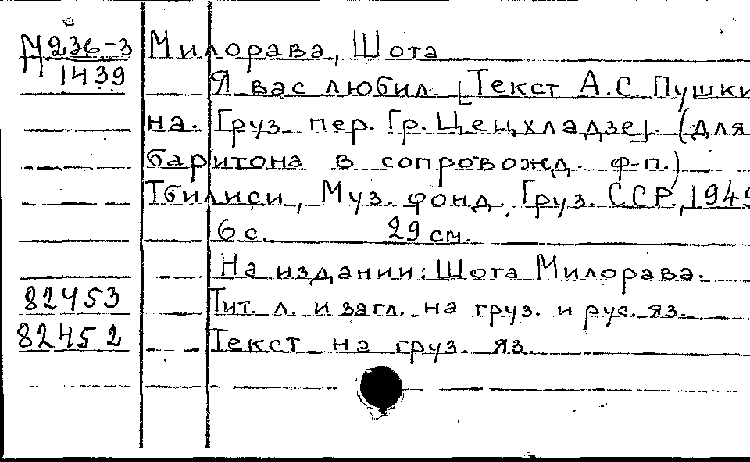 М 236-3 Милорава, Шота
1439 Я вас любил [Текст А.С. Пушки
на. Груз. пер. Гр. Цецхладзе]. (для
баритона в сопровожд. ф-п.)
Тбилиси, Муз. фонд. Груз. ССР, 1949
6 с. 29 см.
На издании: Шота Милорава.
82453 Тит. л. и загл. на груз. и рус. яз.
82452 Текст на груз. яз.